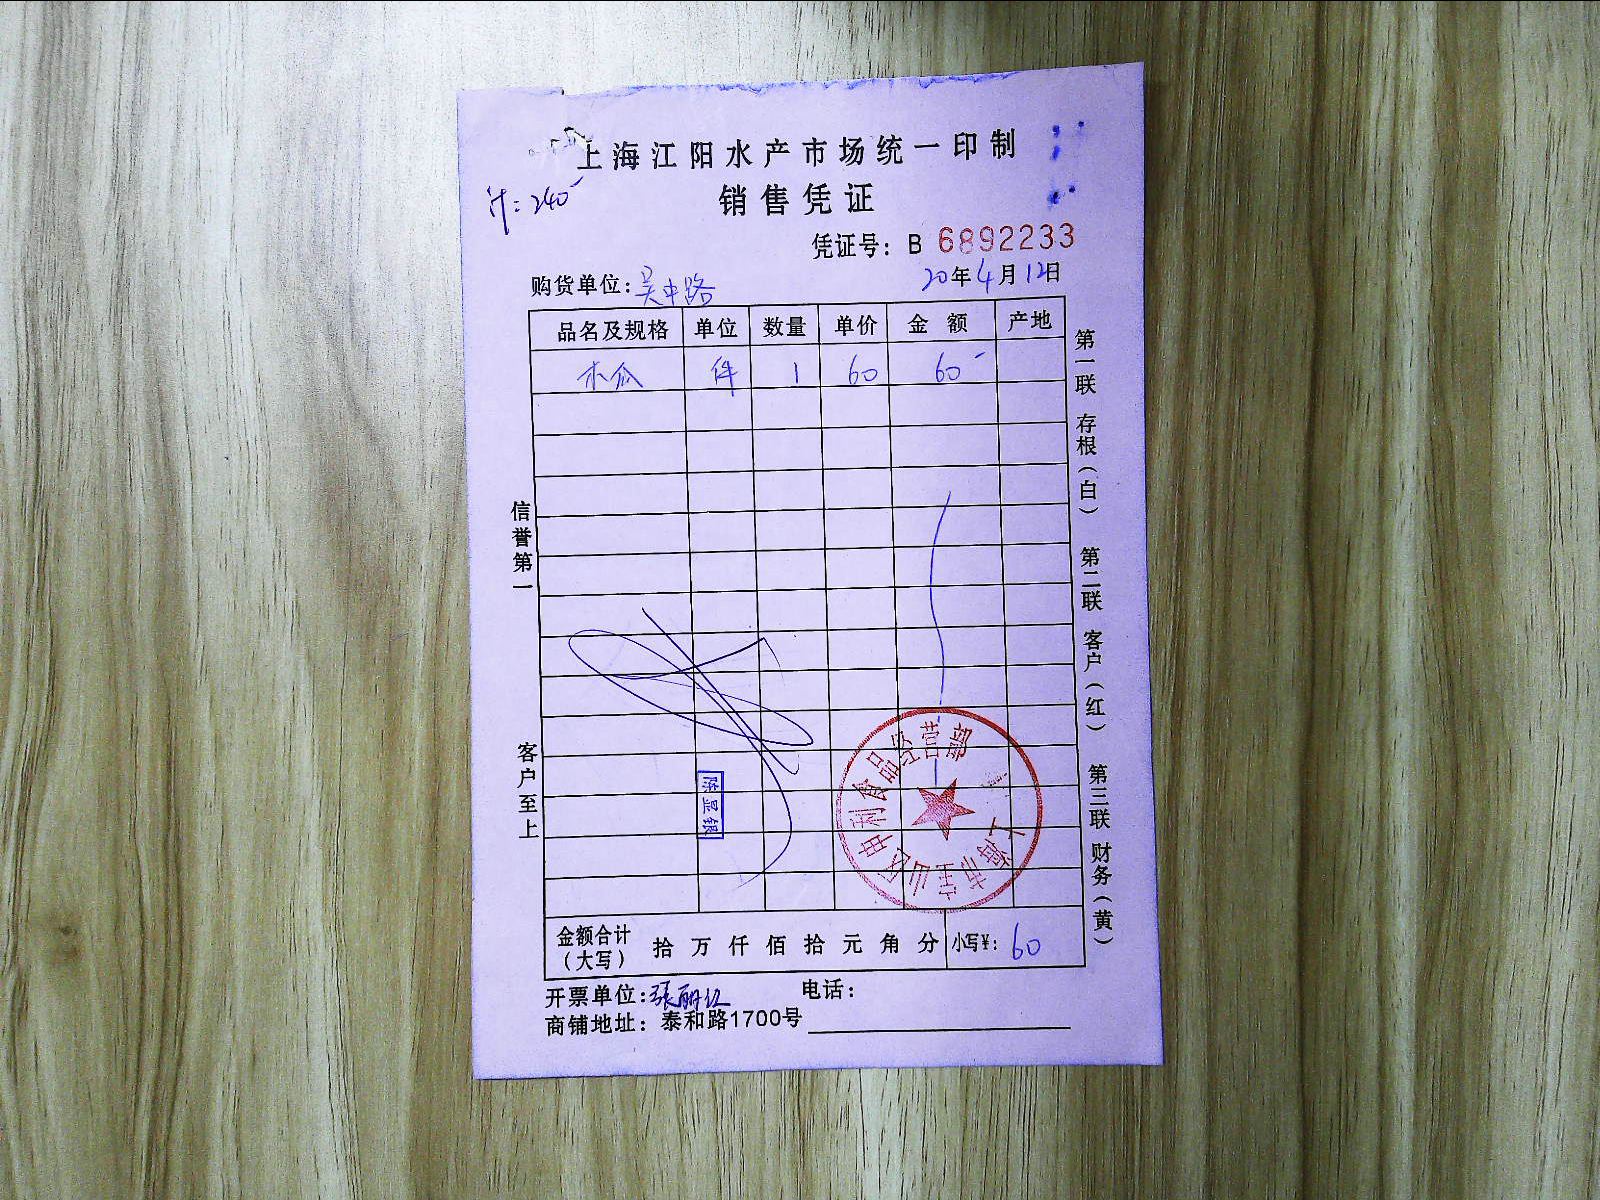 上海江阳水产市场统一印制
计:240
销售凭证
凭证号：B 6892233
购货单位：吴中路
20年4月12日
品名及规格 单位 数量 单价 金额 产地
木瓜 件 1 60 60
信誉第一
客户至上
第一联 存根（白） 第二联 客户（红） 第三联 财务（黄）
陈显银
上海市宝山区申利食品经营部
金额合计（大写） 拾 万 仟 佰 拾 元 角 分 小写¥: 60
开票单位：张丽红 电话：
商铺地址：泰和路1700号